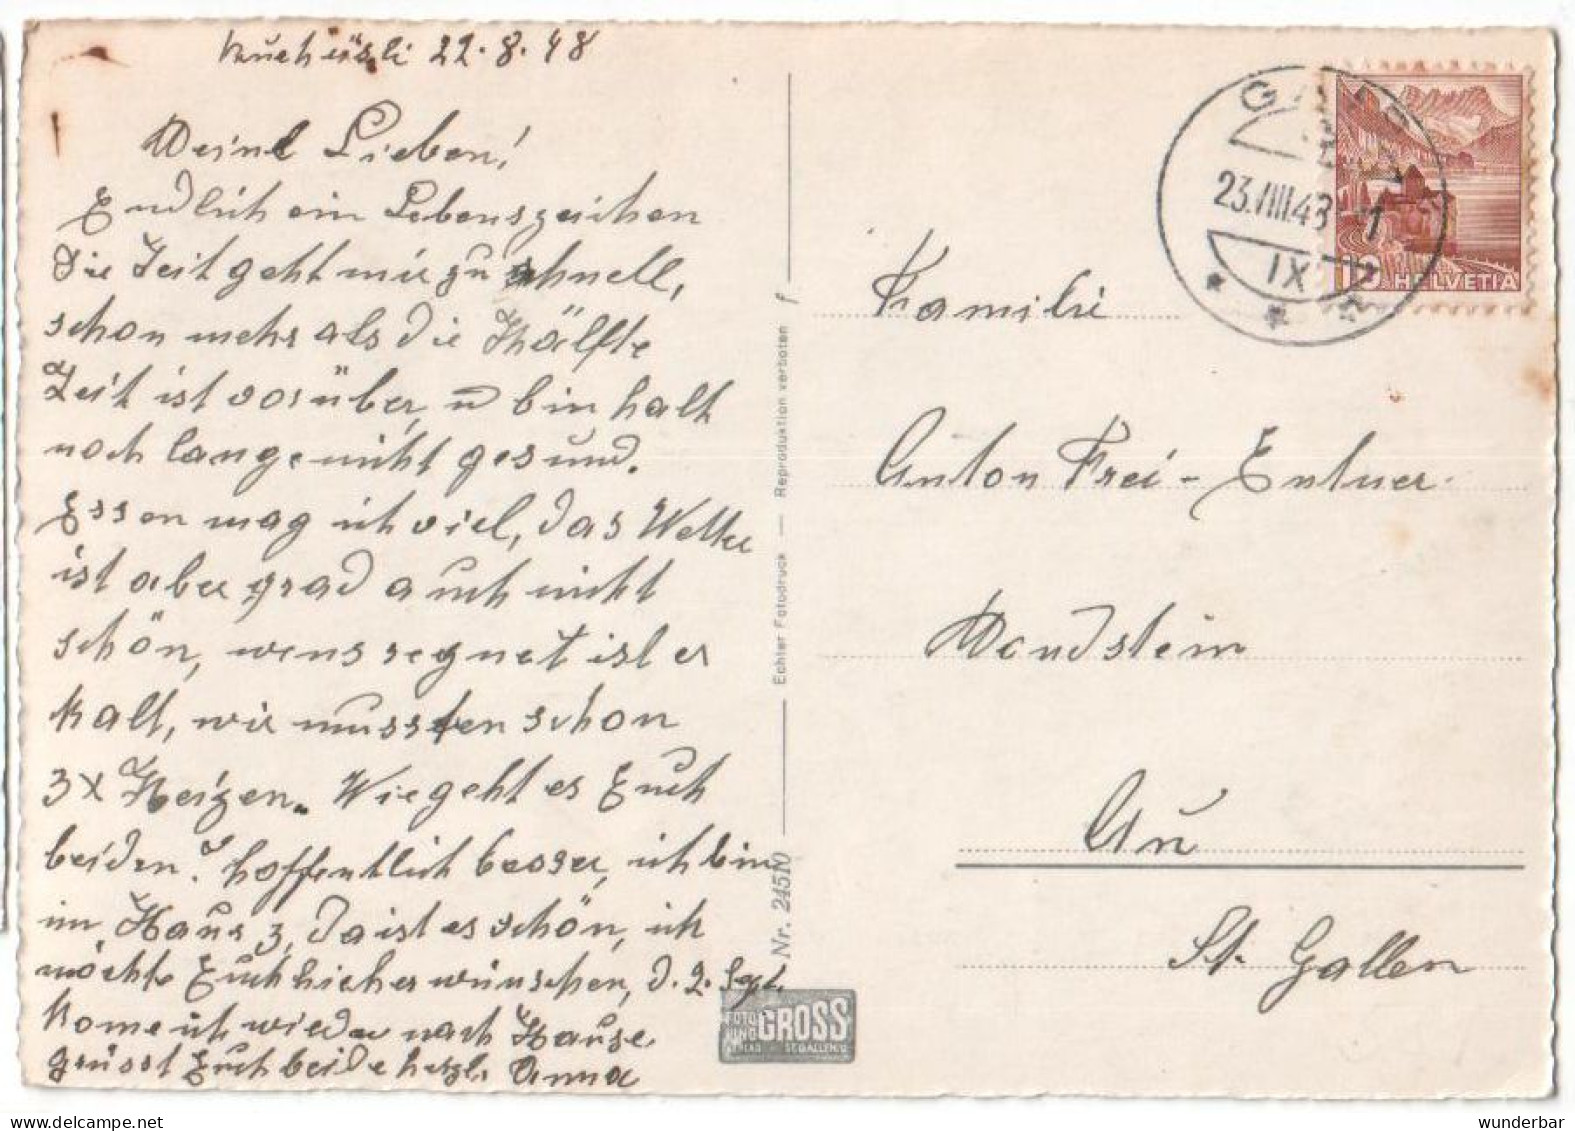 22.8.48
Meine Lieben!
Endlich ein Lebenszeichen
die Zeit geht mir zu schnell,
schon mehr als die Hälfte
Zeit ist vorüber, u bin halt
noch lange nicht gesund.
Essen mag ich viel, das Wetter
ist aber grad auch nicht
schön, wens regnet ist er
kalt, wir mussten schon
3x Heizen. Wie geht es Euch
beiden? hoffentlich besser, ich bin
im Haus 3, da ist es schön, ich
möchte Euch hieher wünschen, d. 2. Sept.
kome ich wieder nach Hause
grüsst Euch beide herzl. Anna
Nr. 24510 Echter Fotodruck — Reproduktion verboten f
FOTO GROSS
ST.GALLEN
23.VIII.48-1
IX
10 HELVETIA
Familie
Anton Frei-Entner
Mondstein
Au
St. Gallen
wunderbar